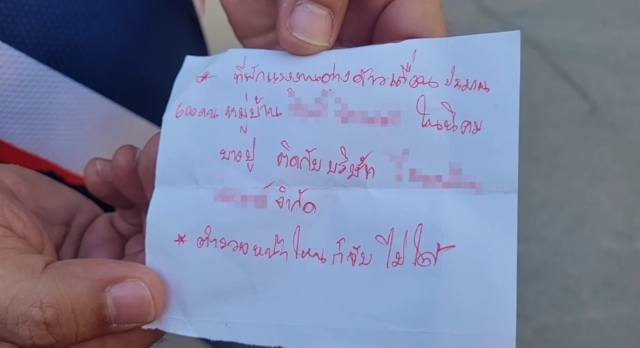 * ที่พักแรงงานต่างด้าวเถื่อน ประมาณ
600คน หมู่บ้าน ในนิคม
บางปู ติดกับ บริษัท
จำกัด
* ตำรวจหน้าไหน ก็จับ ไม่ได้